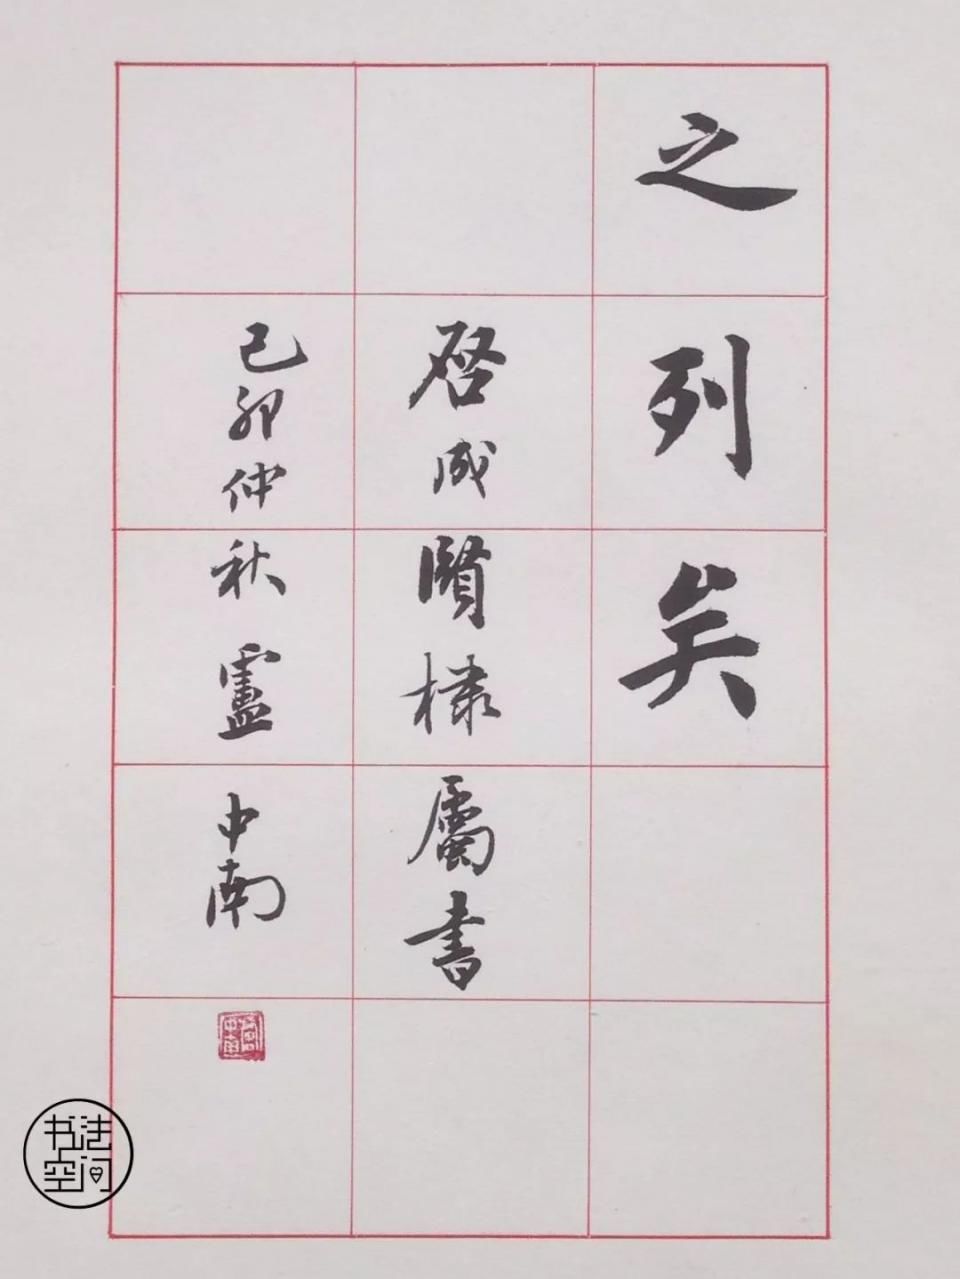 之列矣
啓成賢棣屬書
己卯仲秋盧中南
书法
空间